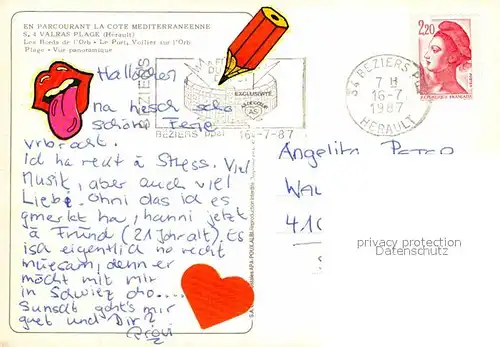 EN PARCOURANT LA COTE MEDITERRANEENNE
S. 4 VALRAS PLAGE (Hérault)
Les Bords de l'Orb - Le Port, Voilier sur l'Orb
Plage - Vue panoramique
Hallöchen
na hesch scho
schöni Ferie
vrbracht.
Ich ha recht ä Stress. Viel
Musik, aber auch viel
Liebe. Ohni das ich es
gmerkt ha, hanni jetzt
ä Fründ (21 Jahr alt). Es
isch eigentlich no recht
müesam, denn er
möcht mit mir
in Schwiiz cho....
Sunscht goht's mir
guet und Dir?
BEZIERS
EXCLUSIVITE
BEZIERS 16-7-87
34 BEZIERS
7 H
16-7
1987
HERAULT
2,20
Angelika
WAL
410
privacy protection
Datenschutz